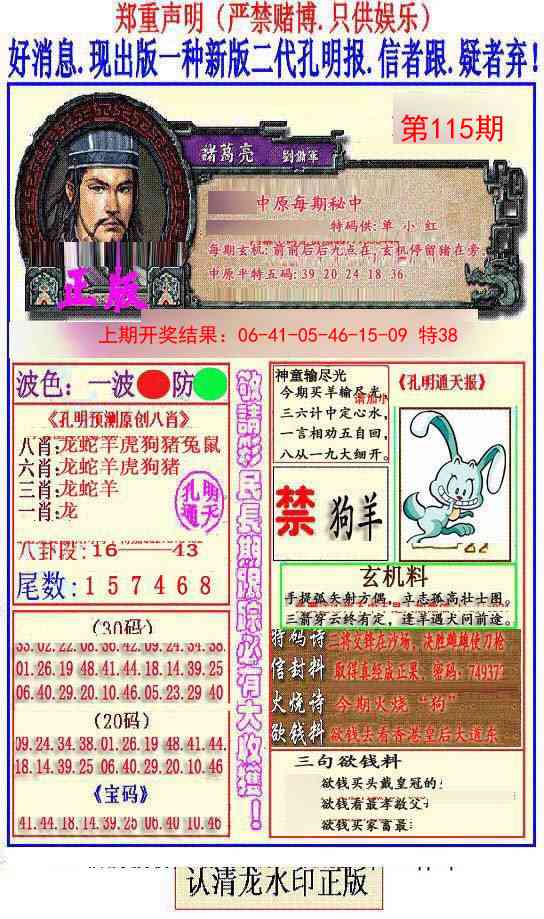 郑重声明（严禁赌博.只供娱乐）
好消息.现出版一种新版二代孔明报.信者跟.疑者弃!
第115期
諸葛亮 劉備軍
中原每期秘中
特码供:单 小 红
每期玄机:前前后后九点在,玄机停留猪在旁
中原平特五码:39 20 24 18 36
正版
上期开奖结果：06-41-05-46-15-09 特38
波色：一波 防
《孔明预测原创八肖》
八肖:龙蛇羊虎狗猪兔鼠
六肖:龙蛇羊虎狗猪
三肖:龙蛇羊
一肖:龙
孔明
通天
八卦段:16——43
尾数:157468
敬請彩民長期跟踪必有大收獲！
神童输尽光
今期买羊输尽光
三六计中定心水,
一言相劝五自回,
八从一九大细开。
《孔明通天报》
禁 狗羊
玄机料
手提弧矢射方偶，立志孤高壮士图。
三箭穿云终有定，逢羊遇犬问前途。
(30码)
33.02.22.08.30.42.09.24.34.38.
01.26.19 48.41.44.18.14.39.25
06.40.29.20.10.46.05.23.29 40
(20码)
09.24.34.38.01.26.19 48.41.44.
18.14.39.25 06.40.29.20.10.46
《宝码》
41.44.18.14.39.25 06.40 10.46
特码诗 三将交锋在沙场，决胜雌雄使刀枪
信封料 取得真经成正果，密码：74937
火烧诗 今期火烧“狗”
欲钱料 欲钱去看香港皇后大道东
三句欲钱料
欲钱买头戴皇冠的:
欲钱看最孝敬父
欲钱买家富最
认清龙水印正版